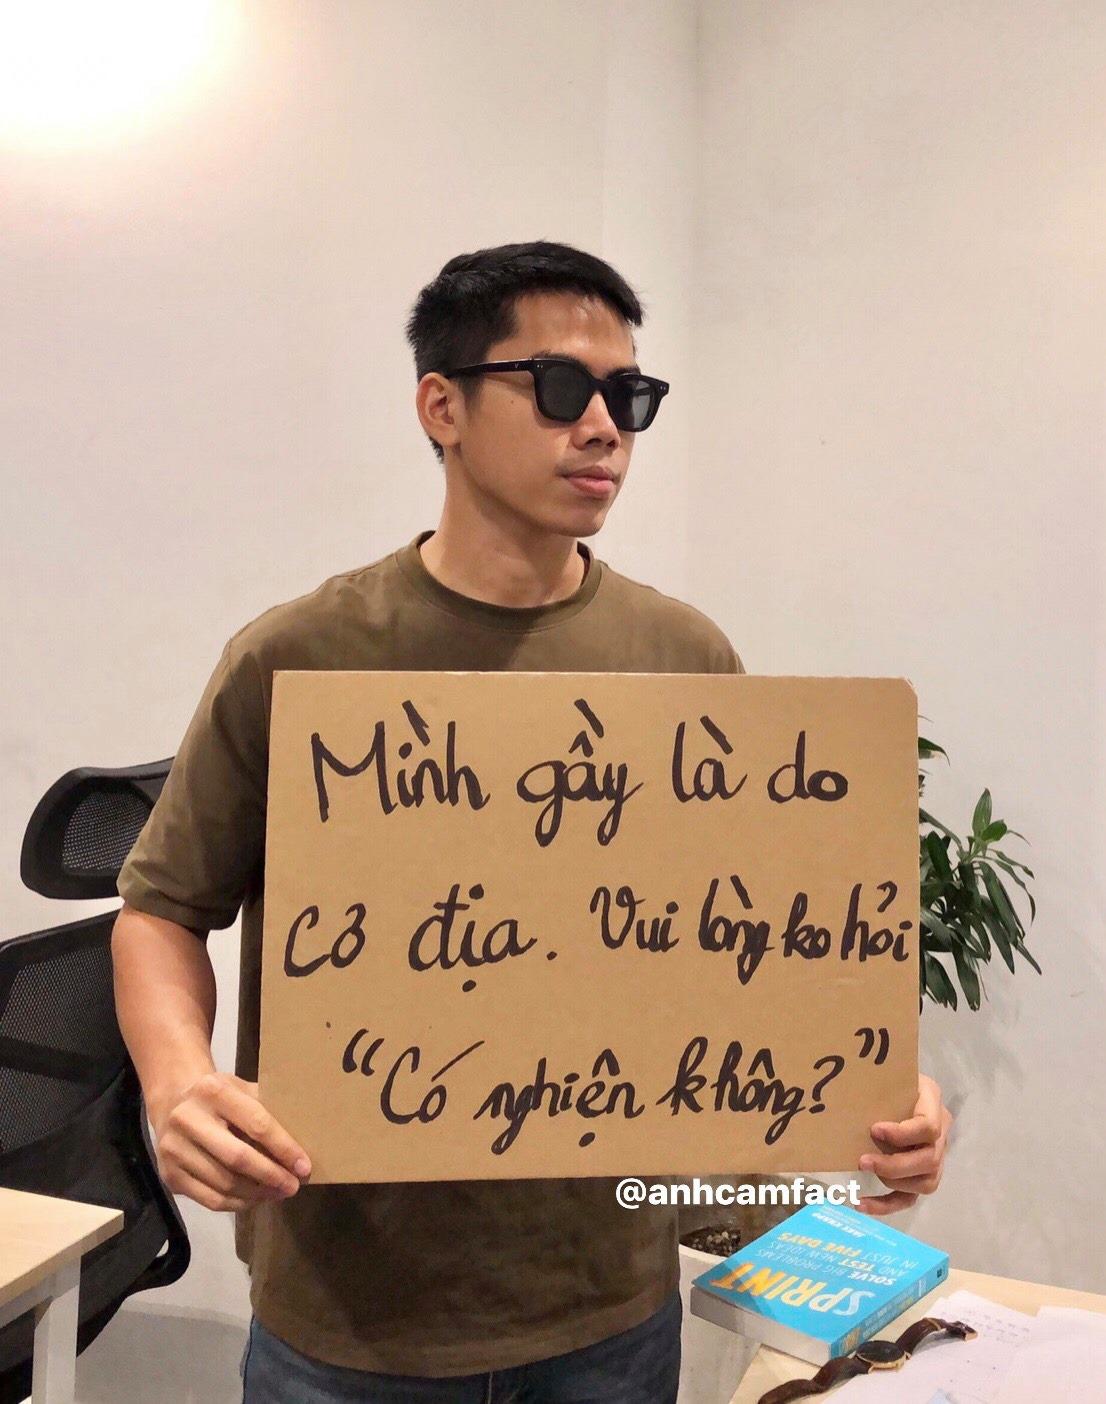 Mình gầy là do
cơ địa. Vui lòng ko hỏi
"Có nghiện không?"
@anhcamfact
SPRINT
SOLVE BIG PROBLEMS
AND TEST NEW IDEAS
IN JUST FIVE DAYS
JAKE KNAPP